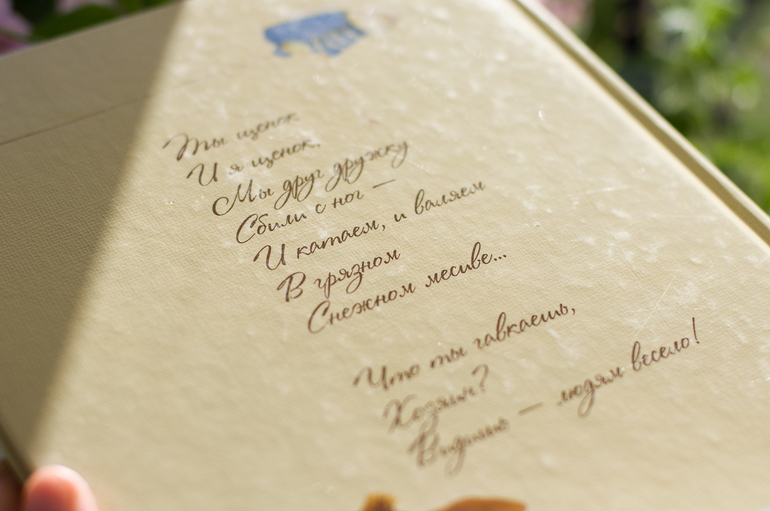 Ты щенок
И я щенок,
Мы друг дружку
Сбили с ног —
И катаем, и валяем
В грязном
Снежном месиве...
Что ты гавкаешь,
Хозяин?
Видимо — людям весело!